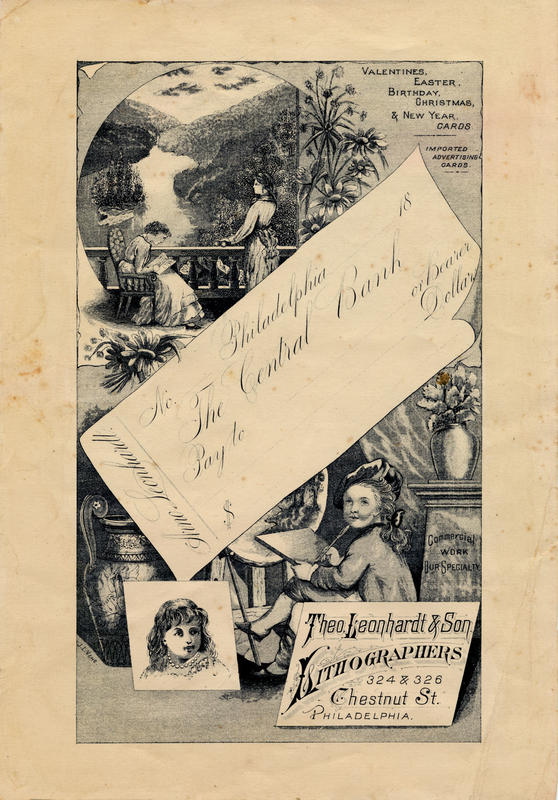 VALENTINES,
EASTER,
BIRTHDAY,
CHRISTMAS,
& NEW YEAR
CARDS
IMPORTED
ADVERTISING
CARDS.
18
No. Philadelphia
The Central Bank
Pay to or Bearer
Dollar
$
Leonhardt.
Commercial
WORK
OUR SPECIALTY
Theo. Leonhardt & Son,
LITHOGRAPHERS
324 & 326
Chestnut St.
PHILADELPHIA.